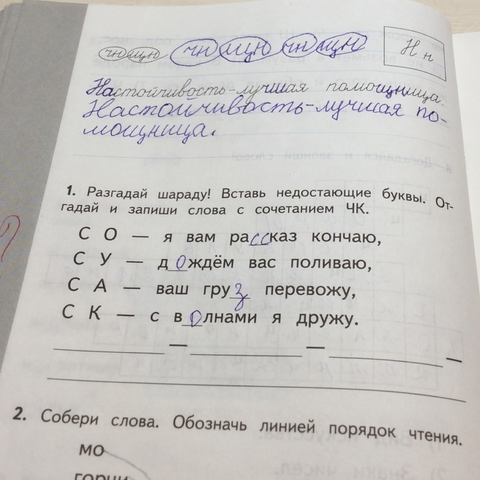 чн щн чн щн чн щн
Н н
Настойчивость-лучшая помощница.
Настойчивость-лучшая по-
мощница.
1. Разгадай шараду! Вставь недостающие буквы. От-
гадай и запиши слова с сочетанием ЧК.
С О — я вам рассказ кончаю,
С У — дождём вас поливаю,
С А — ваш груз перевожу,
С К — с волнами я дружу.
— — —
2. Собери слова. Обозначь линией порядок чтения.
мо
горчи